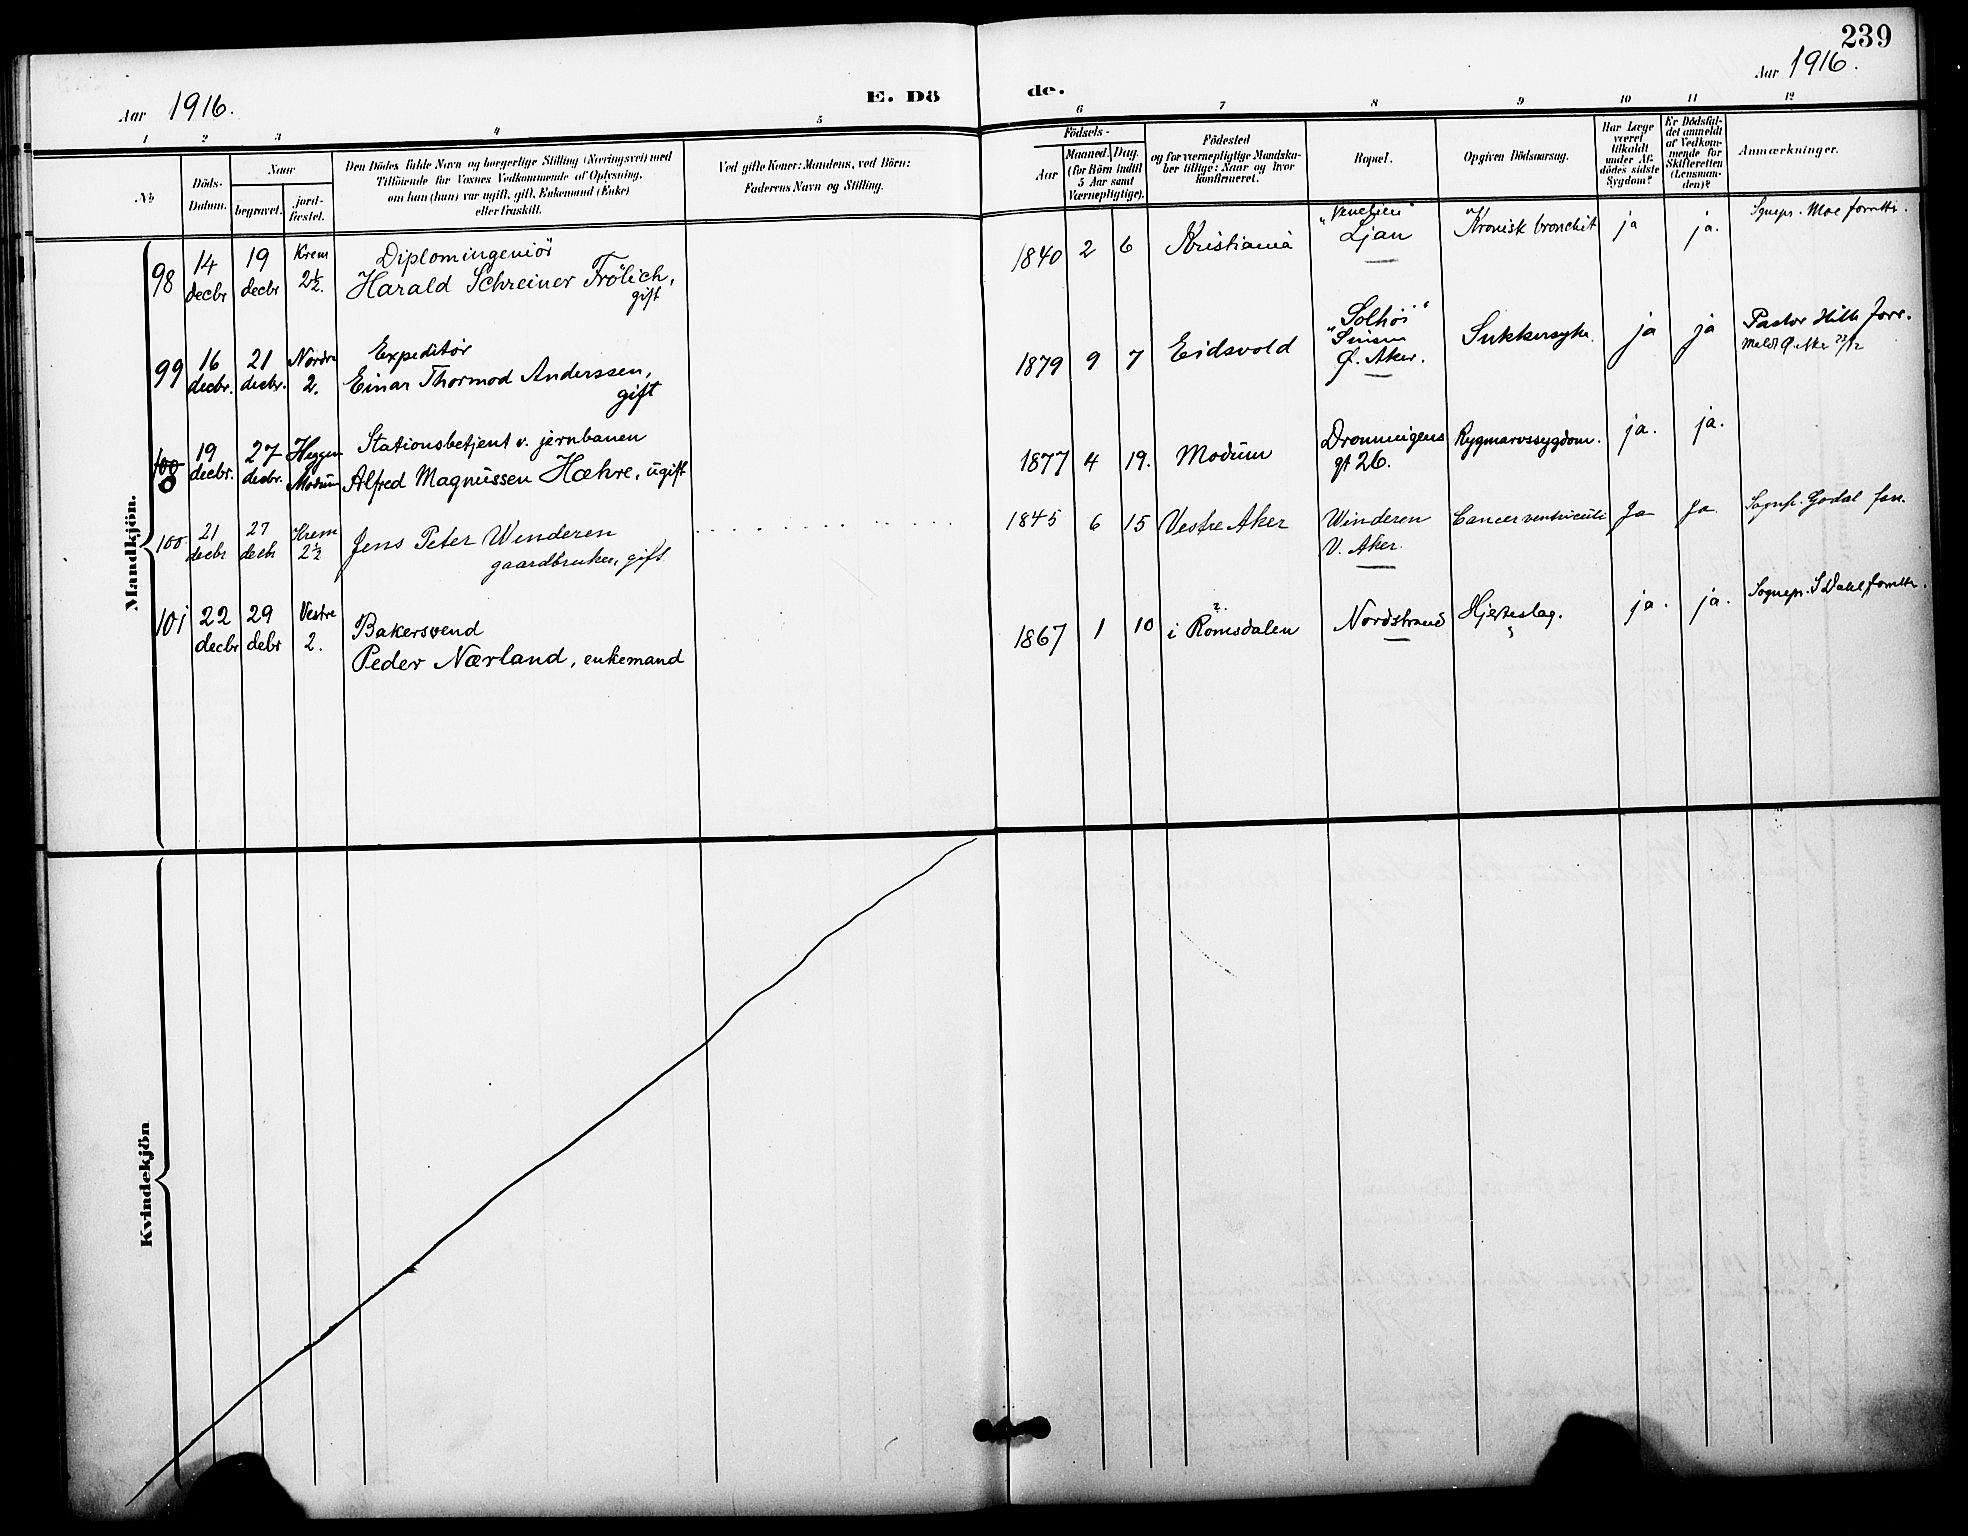 239
Aar 1916.
E. Dö
de.
Aar 1916.
1 2 3 4 5 6 7 8 9 10 11 12
No
Döds-
Datum.
Naar
begravet.
jord-
fæstet.
Den Dödes fulde Navn og borgerlige Stilling (Næringsvei) med
Tilföiende for Voxnes Vedkommende af Oplysning,
om han (hun) var ugift, gift, Enkemand (Enke)
eller fraskilt.
Ved gifte Koner: Mandens, ved Börn:
Faderens Navn og Stilling.
Födsels-
Aar
Maaned. Dag.
(for Börn indtil
5 Aar samt
Værnepligtige).
Födested
og for værnepligtige Mandska-
ber tillige: Naar og hvor
konfirmeret.
Bopæl.
Opgiven Dödsaarsag.
Har Læge
været
tilkaldt
under Af-
dödes sidste
Sygdom?
Er Dödsfal-
det anmeldt
af Vedkom-
mende for
Skifteretten
(Lensman-
den)?
Anmærkninger.
Mandkjön.
98
14
decbr
19
decbr
Krem
2½.
Diplomingeniör
Harald Schreiner Frölich,
gift
1840 2 6 Kristiania
Ljan
Kronisk bronchit ja ja.
Sognepr. Moe forrettr.
99
16
decbr.
21
decbr.
Nordre
2.
Expeditör
Einar Thormod Anderssen,
gift
1879 9 7 Eidsvold
"Solhöi"
Sinsen
Ø. Aker.
Sukkersyke ja ja
Pastor Hille forr.
Meldt Ø. Aker 22/12
100
0
19
decbr.
27
decbr.
Heggen
Modum
Stationsbetjent v. jernbanen
Alfred Magnussen Hæhre, ugift
1877 4 19. Modum
Dronningens
gt 26.
Rygmarvssygdom. ja. ja.
100
21
decbr
27
decbr
Krem
2½
Jens Peter Winderen
gaardbruker, gift
1845 6 15 Vestre Aker
Winderen
V. Aker.
Cancer ventriculi Ja Ja.
Sognpr. Godal forr.
101
22
decbr
29
debr
Vestre
2.
Bakersvend
Peder Nærland, enkemand
1867 1 10
?
i Romsdalen
Nordstrand
Hjerteslag. ja. ja.
Sognepr. S Dahl forrettr.
Kvindekjön